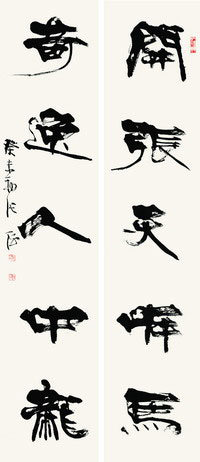 開張天岸馬
奇逸人中龍
癸未